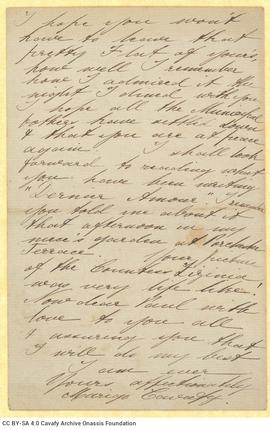 I hope you won't
have to leave that
pretty Flat of yours,
how well I remember
how I admired it the
night I dined with you
I hope all the Municipal
bothers have settled down
& that you are at peace
again. I shall look
forward to reading what
you have been writing
"Dernier Amour" I remember
you told me about it
that afternoon in my
garden at
Terrace. Your picture
of the Countess
was very life like!
Now dear Paul with
love to you all
& assuring you that
I will do my best
I am ever
Yours affectionately
Marigo Cavafy.
CC BY-SA 4.0 Cavafy Archive Onassis Foundation